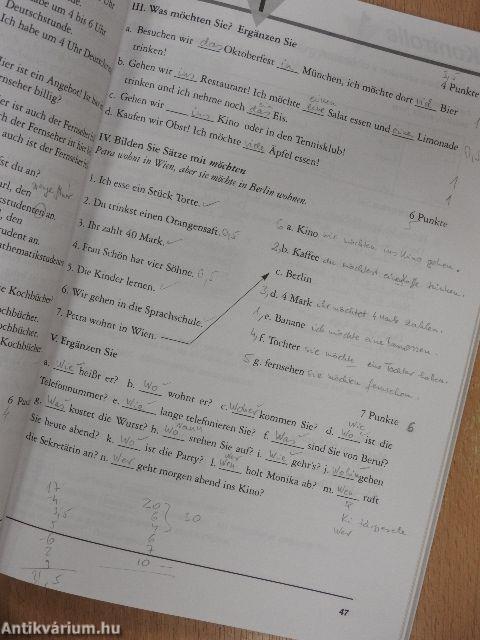 um 4 bis 6 Uhr
Deutschstunde.
Ich habe um 4 Uhr Deutsch
Hier ist ein Angebot! Ist
Fernseher billig?
ier ist auch der Fernseher
ch der Fernseher in
auch ist der Fernseher
st du an?
den
studenten an.
dent an.
athematikstudent
e Kochbücher
Kochbücher.
Kochbücher.
Kochbücher.
6 Pun
4
Kontrolle
III. Was möchten Sie? Ergänzen Sie
4 Punkte
a. Besuchen wir das Oktoberfest in München, ich möchte dort viel Bier
trinken!
b. Gehen wir ins Restaurant! Ich möchte einen Salat essen und eine Limonade
trinken und ich nehme noch das Eis.
c. Gehen wir ins Kino oder in den Tennisklub!
d. Kaufen wir Obst! Ich möchte viele Äpfel essen!
1
1
IV. Bilden Sie Sätze mit möchten
6 Punkte
Petra wohnt in Wien, aber sie möchte in Berlin wohnen.
1. Ich esse ein Stück Torte.
2. Du trinkst einen Orangensaft. 0,5
3. Ihr zahlt 40 Mark.
4. Frau Schön hat vier Söhne. 0,5
5. Die Kinder lernen.
6. Wir gehen in die Sprachschule.
7. Petra wohnt in Wien.
6 a. Kino wir möchten ins Kino gehen.
2, b. Kaffee du möchtest
c. Berlin
3, d. 4 Mark ihr möchtet 4 Mark zahlen.
1, e. Banane ich möchte eine Banane essen.
4, f. Tochter sie möchte eine Tochter haben.
5 g. fernsehen sie möchten fernsehen.
V. Ergänzen Sie
7 Punkte 6
a. Wie heißt er? b. Wo wohnt er? c. Woher kommen Sie? d. Wo wie ist die
Telefonnummer? e. Wie lange telefonieren Sie? f. Was sind Sie von Beruf?
g. Was kostet die Wurst? h. Wo wann stehen Sie auf? i. Wie geht's? j. Wohin gehen
Sie heute abend? k. Wo ist die Party? l. Wen wer holt Monika ab? m. Wen ruft
die Sekretärin an? n. Wer geht morgen abend ins Kino?
wer
17
4
3,5
5
6
2
9
20
6
4
30
6
7
10
47
Antikvárium.hu